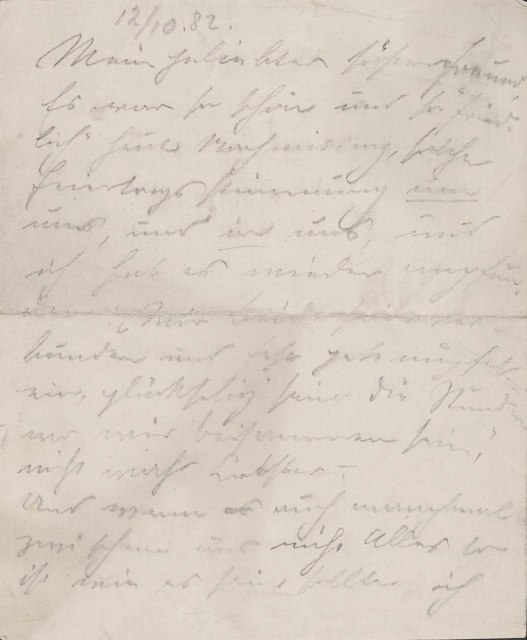 12/10.82.
Mein geliebter süßer Freund
Es war so schön und so fried-
lich heute Nachmittag, solche
Feiertagsstimmung um
uns, und in uns, und
ich hab es wieder empfun-
den „Wir beide sind ver-
bunden und
glückselig sind die Stunden
wo wir beisammen sein,"
nicht wahr Liebster –
Und wenn es auch manchmal
zwischen uns nicht Alles so
ist wie es sein sollte, ich